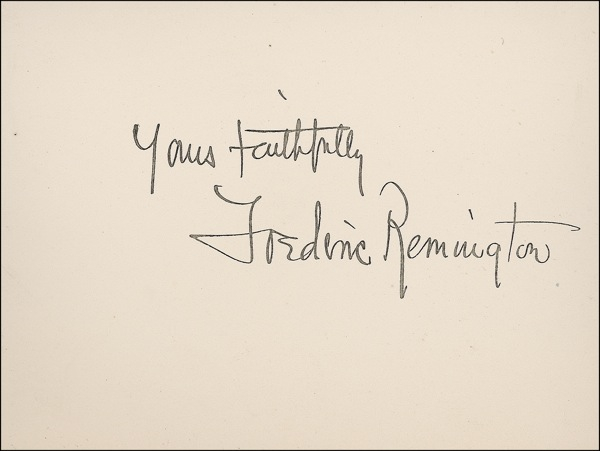 Yours faithfully
Frederic Remington